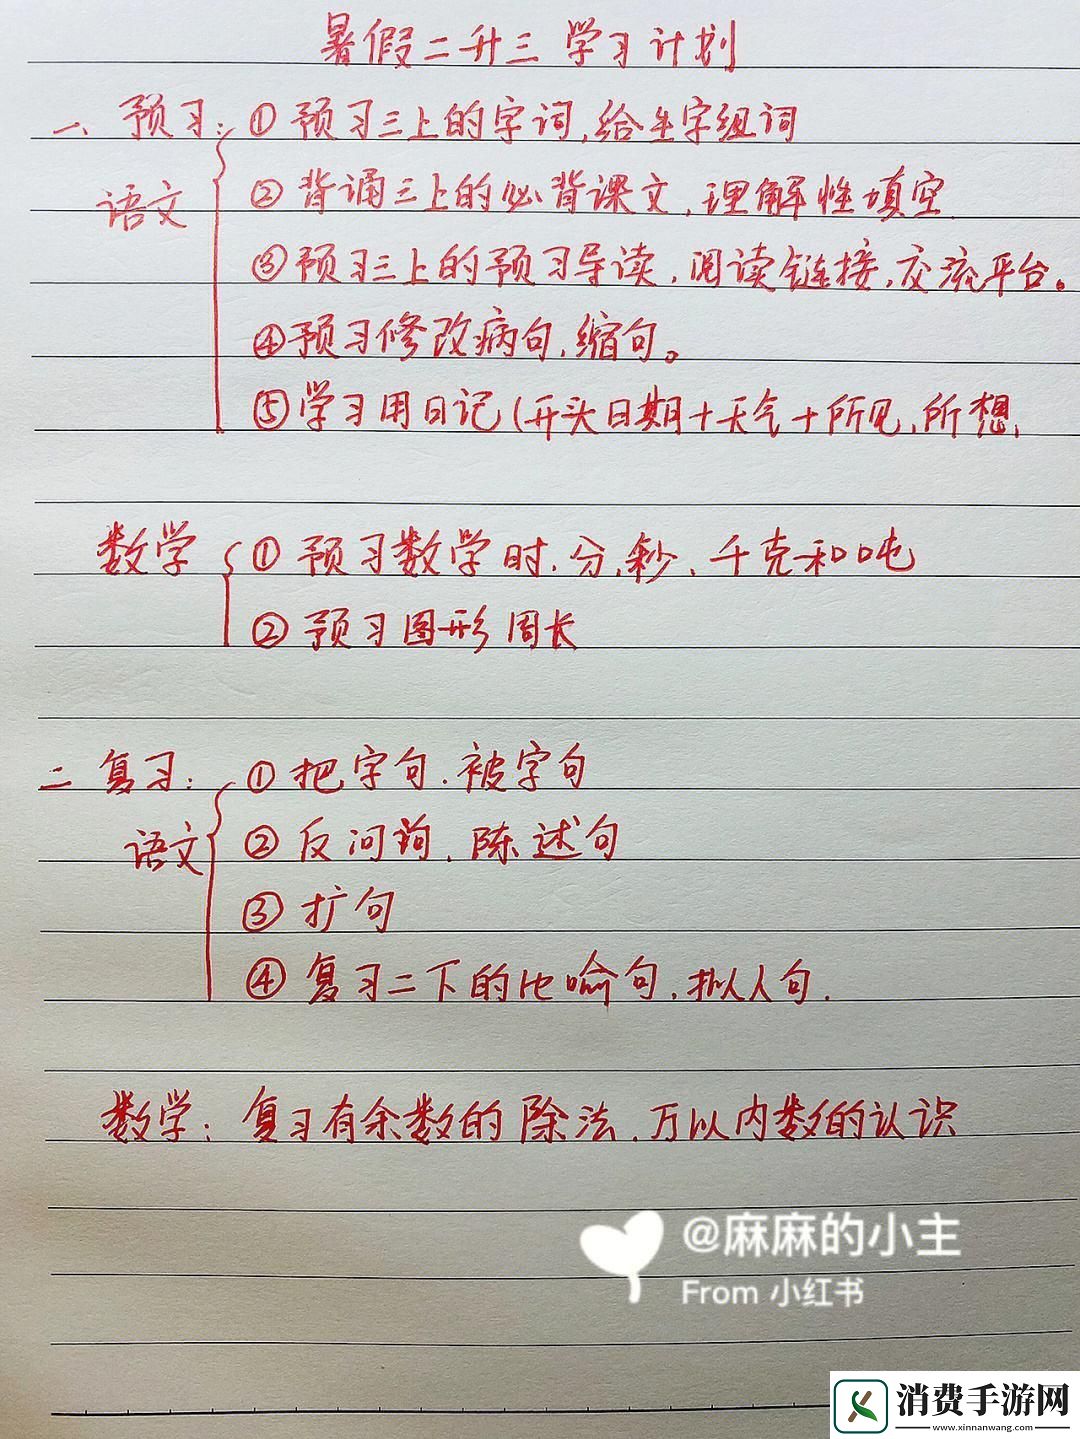 暑假二升三 学习计划
一、预习：①预习三上的字词,给生字组词
语文 ②背诵三上的必背课文,理解性填空.
③预习三上的预习导读,阅读链接,交流平台。
④预习修改病句,缩句。
⑤学习用日记(开头日期+天气+所见,所想,
数学 ①预习数学时、分、秒、千克和吨
②预习图形周长
二 复习：①把字句.被字句
语文 ②反问句、陈述句
③扩句
④复习二下的比喻句,拟人句.
数学：复习有余数的除法,万以内数的认识
@麻麻的小主
From 小红书
消费手游网
www.xinnanwang.com